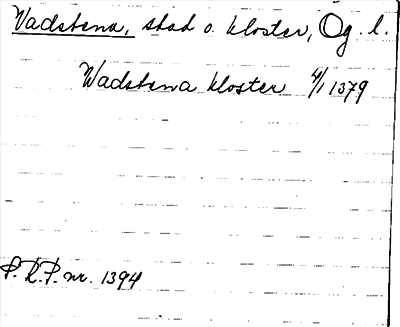 Vadstena, stad o. kloster, Ög. l.
Wadstena kloster 4/1 1379
P.R.P. nr. 1394